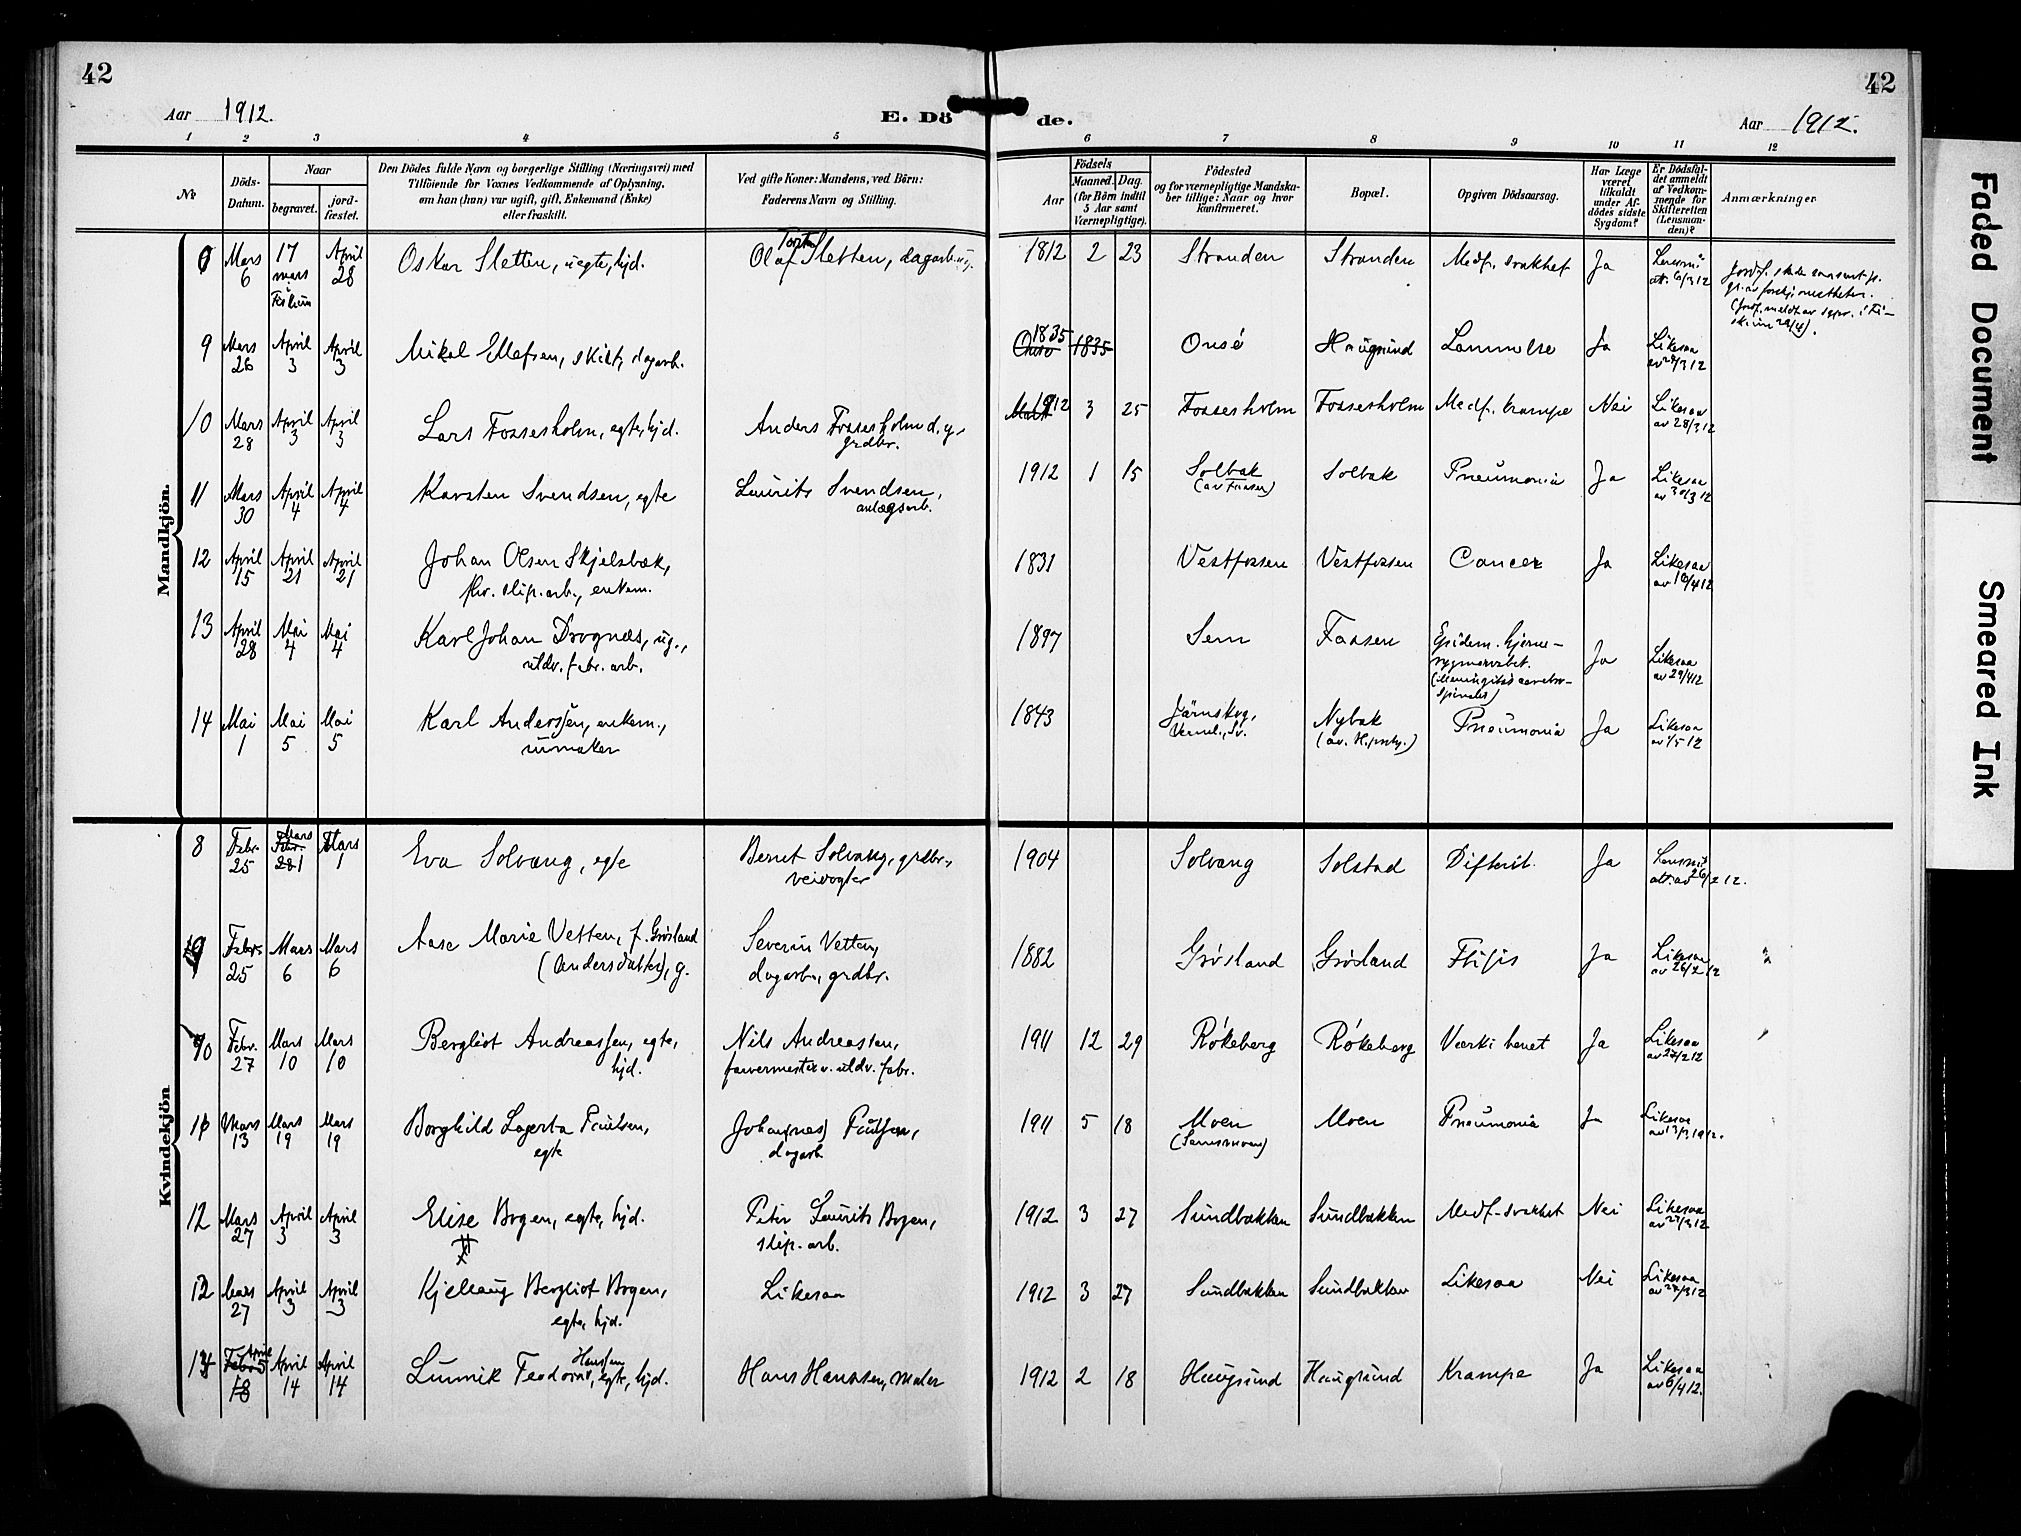 42
42
Aar 1912.
E. Dö de.
Aar 1912.
1 2 3 4 5 6 7 8 9 10 11 12
No.
Döds-Datum.
Naar
begravet.
jord-fæstet.
Den Dödes fulde Navn og borgerlige Stilling (Næringsvei) med
Tilföiende for Voxnes Vedkommende af Oplysning,
om han (hun) var ugift, gift, Enkemand (Enke)
eller fraskilt.
Ved gifte Koner: Mandens, ved Börn:
Faderens Navn og Stilling.
Födsels
Aar
Maaned. Dag.
(for Börn indtil
5 Aar samt
Værnepligtige).
Födested
og for værnepligtige Mandska-
ber tillige: Naar og hvor
konfirmeret.
Bopæl.
Opgiven Dödsaarsag.
Har Læge
været
tilkaldt
under Af-
dödes sidste
Sygdom?
Er Dödsfal-
det anmeldt
af Vedkom-
mende for
Skifteretten
(Lensman-
den)?
Anmærkninger
Mandkjön.
Mars 6 17 mars April 28 Oskar Sletten, uegte, hjd. Olaf Sletten, dagarb. 1812 2 23 Stranden Stranden Medf. svakhet Ja
9 Mars 26 April 3 April 3 Mikal Ellefsen, skilt, dagarb. 1835 Onsö 1835 Onsö Haugsund Lammelse Ja Likesaa
10 Mars 28 April 3 April 3 Lars Fossesholm, egte, hjd. Anders Fossesholm d.y. grdbr. 1912 3 25 Fossesholm Fossesholm Medf. krampe Nei Likesaa av 28/3 12
11 Mars 30 April 4 April 4 Karsten Svendsen, egte Laurits Svendsen, anlægsarb. 1912 1 15 Solbak Solbak Pneumonia Ja Likesaa av 30/3 12
12 April 15 April 21 April 21 Johan Olsen Skjelsbæk, slip. arb., enkem. 1831 Vestfossen Vestfossen Cancer Ja Likesaa av 16/4 12
13 April 28 Mai 4 Mai 4 Karl Johan Drognæs, ug., uldv. fabr. arb. 1897 Sem Faasen Epidem. hjerne- Ja Likesaa av 29/4 12
14 Mai 1 Mai 5 Mai 5 Karl Anderssen, enkem., urmaker 1843 Järnskog, Verml., Sv. Nybak Pneumonia Ja Likesaa av 1/5 12
Kvindekjön
8 Febr. 25 Mars Febr. 28 1 Mars 1 Eva Solvang, egte Bernt Solvang, grdbr., veivogter 1904 Solvang Solstad Difterit. Ja
9 Febr. 25 Mars 6 Mars 6 Aase Marie Vetten, f. Grösland (Andersdatter), g. Severin Vetten, dagarb., grdbr. 1882 Grösland Grösland Ftisis Ja Likesaa av 26/2 12
10 Febr. 27 Mars 10 Mars 10 Bergliot Andreassen, egte, hjd. Nils Andreassen, farvermester v. uldv. fabr. 1911 12 29 Rökeberg Rökeberg Værk i benet Ja Likesaa av 27/2 12
11 Mars 13 Mars 19 Mars 19 Borghild Lagerta Paulsen, egte Johan(nes) Paulsen, dagarb 1911 5 18 Moen Moen Pneumonia Ja Likesaa av 13/3 1912.
12 Mars 27 April 3 April 3 Elise Bogen, egte, hjd. Peter Laurits Bogen, slip. arb. 1912 3 27 Sundbakken Sundbakken Medf. svakhet Nei Likesaa av 27/3 12
13 Mars 27 April 3 April 3 Kjellaug Bergliot Bogen, egte, hjd. Likesaa 1912 3 27 Sundbakken Sundbakken Likesaa Nei Likesaa av 27/3 12
14 April 5 Febr. 18 April 14 April 14 Hanssen, egte, hjd. Hans Hanssen, maler 1912 2 18 Haugsund Haugsund Krampe Ja Likesaa av 6/4 12.
Faded Document
Smeared Ink